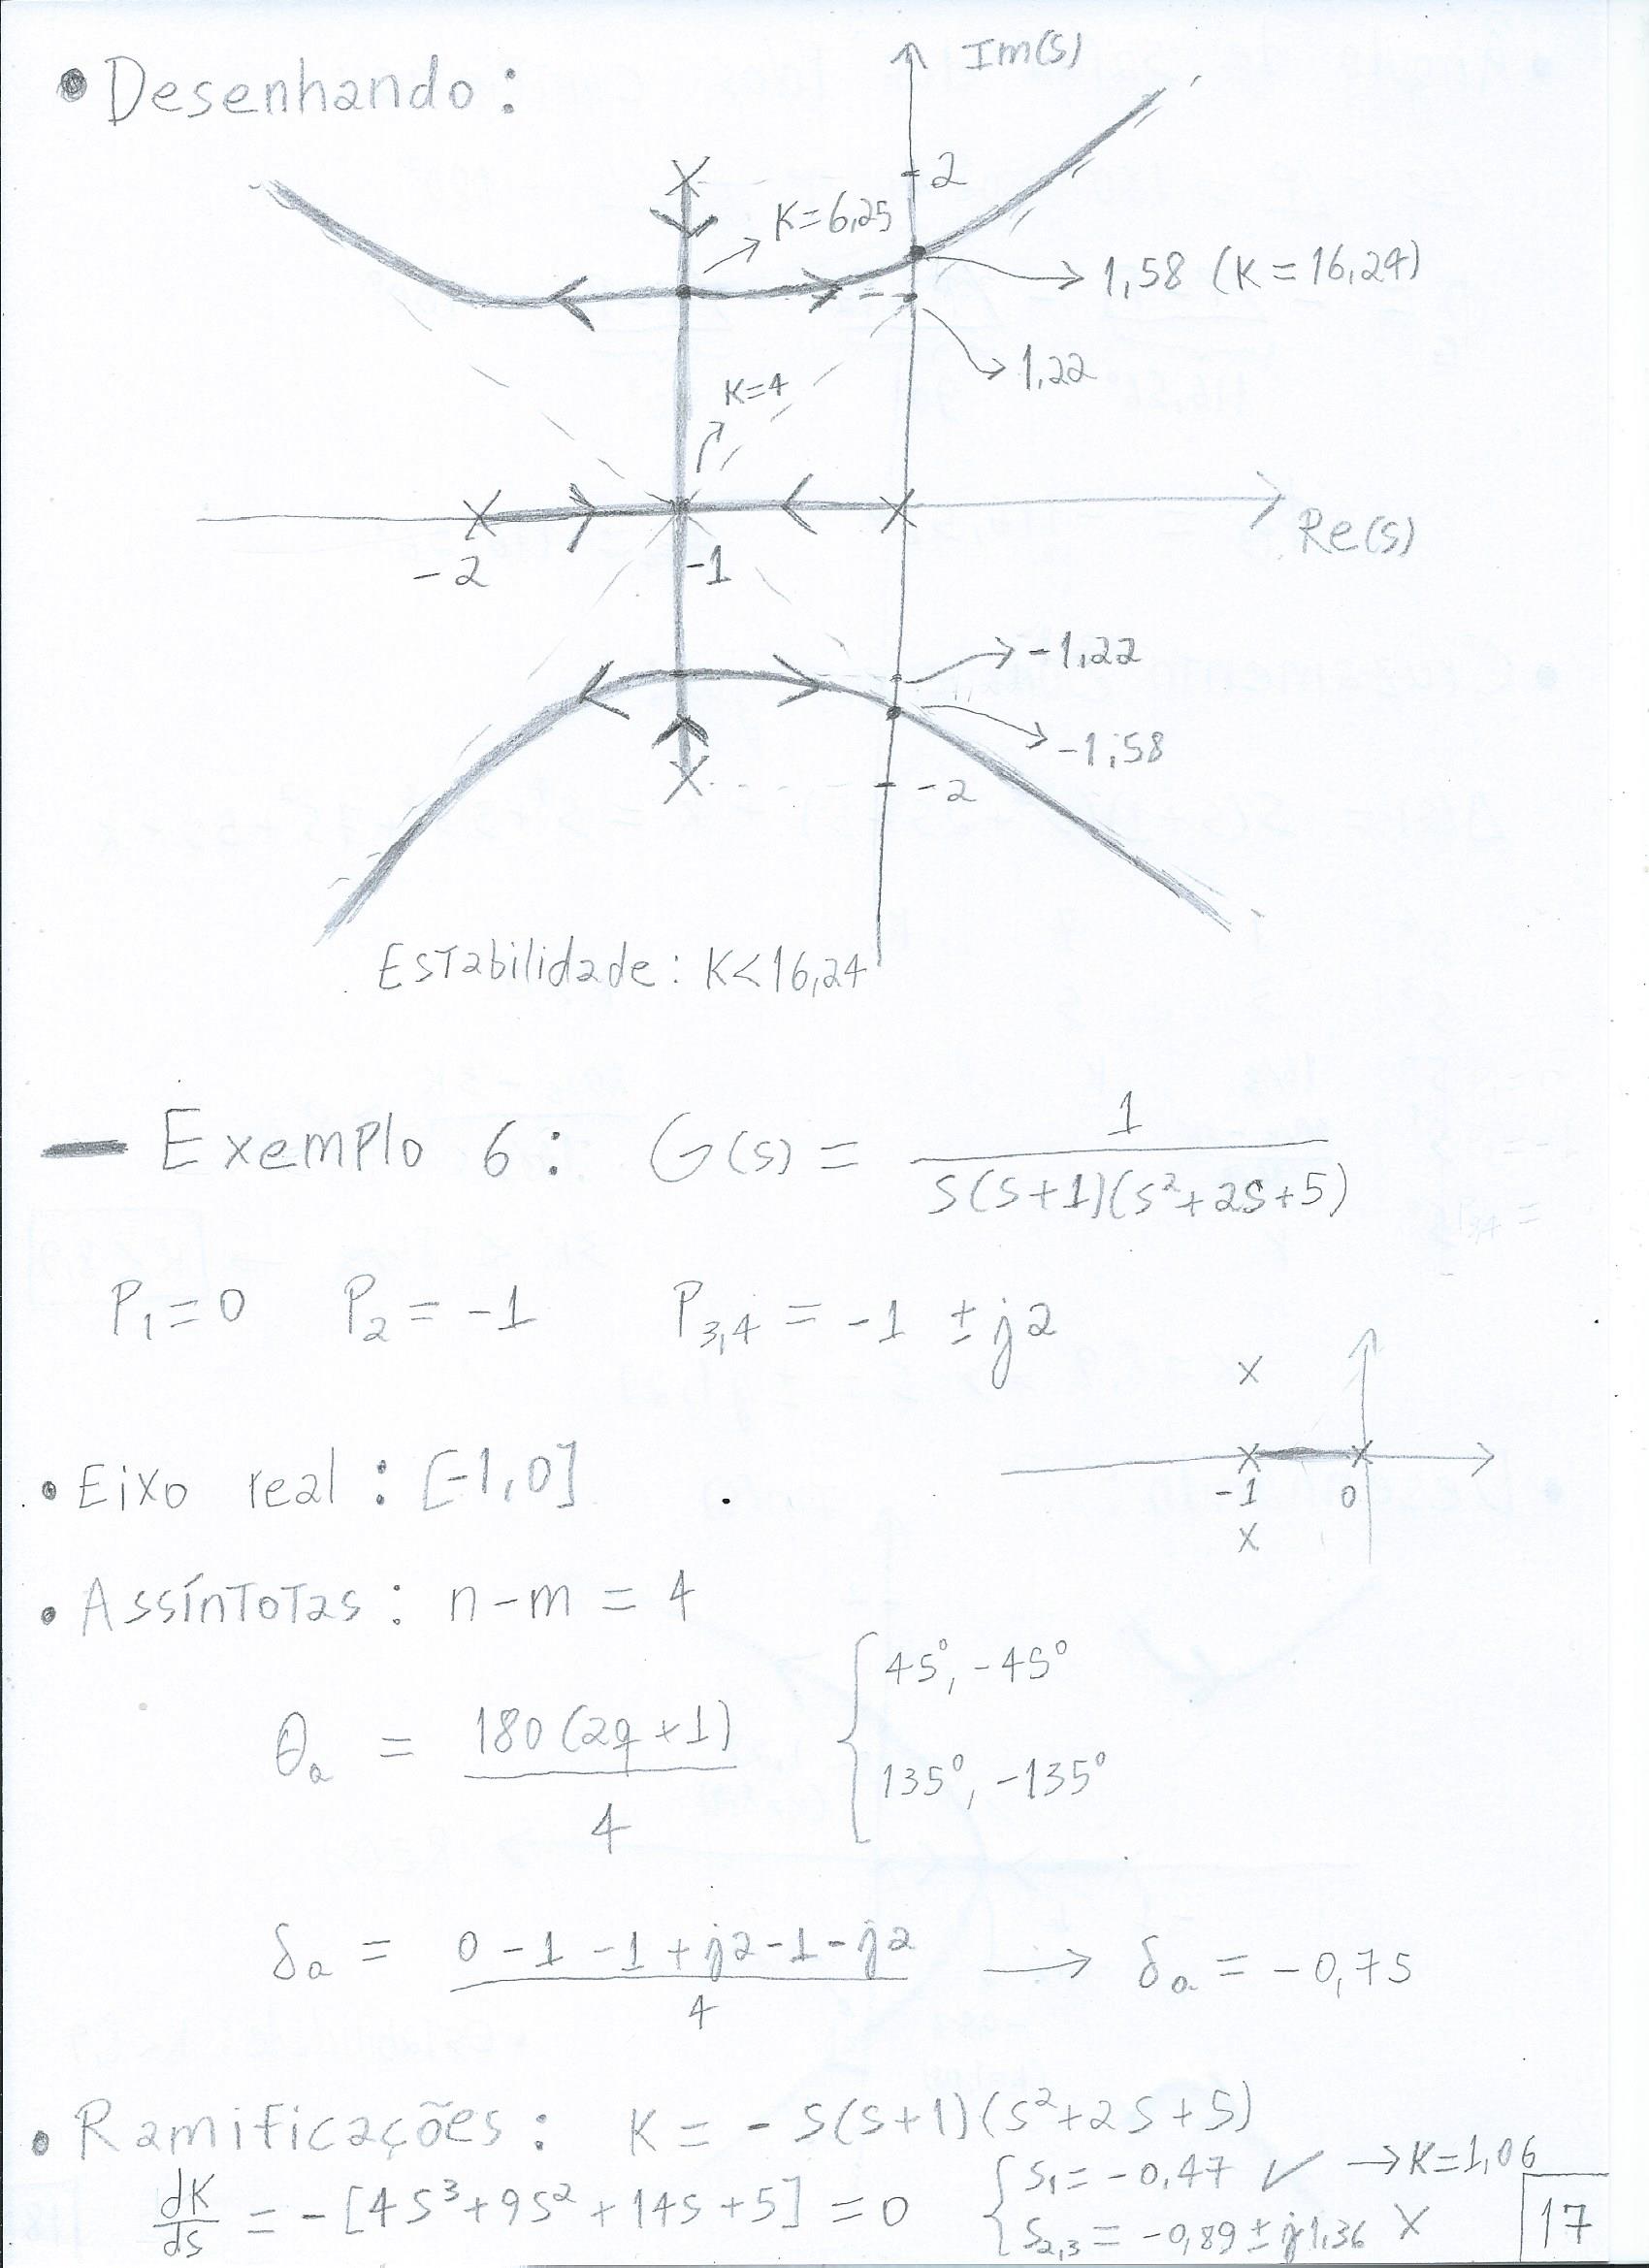 • Desenhando:
Im(s)
2
K=6,25
1,58 (K=16,24)
1,22
K=4
-2
-1
Re(s)
-1,22
-1,58
-2
Estabilidade: K<16,24
— Exemplo 6: G(s) = 1 / s(s+1)(s²+2s+5)
P₁=0 P₂=-1 P₃,₄=-1 ±j2
• Eixo real: [-1,0]
-1 0
• Assíntotas: n-m = 4
θₐ = 180(2q+1) / 4 { 45°, -45°
135°, -135°
δₐ = 0-1-1+j2-1-j2 / 4 → δₐ = -0,75
• Ramificações: K = - s(s+1)(s²+2s+5)
dK/ds = -[4s³+9s²+14s+5] = 0 { s₁=-0,47 ✓ → K=1,06
s₂,₃=-0,89±j1,36 X
17